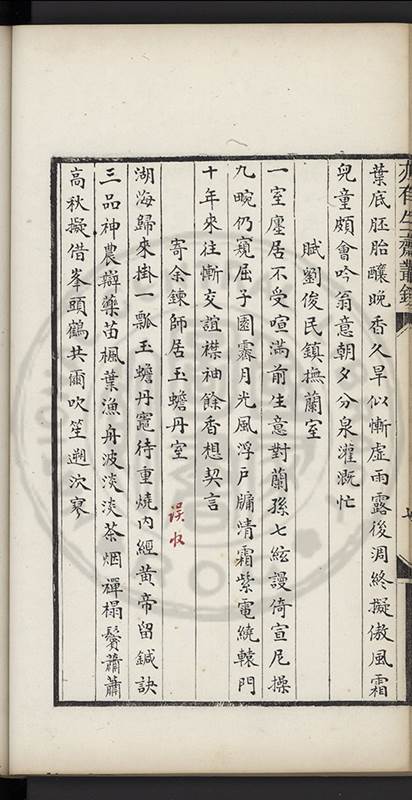 葉底胚胎釀晚香久旱似慚虛雨露後凋終擬傲風霜
兒童頗會吟翁意朝夕分泉灌溉忙
賦劉俊民鎮撫蘭室
一室廛居不受喧滿前生意對蘭孫七絃謾倚宣尼操
九畹仍窺屈子園霽月光風浮戶牖清霜紫電繞轅門
十年來往慚交誼襟袖餘香想契言
寄余鍊師居玉蟾丹室
误收
湖海歸來掛一瓢玉蟾丹竈待重燒內經黃帝留鍼訣
三品神農辯藥苗楓葉漁舟波淡淡茶烟禪榻鬢蕭蕭
高秋擬借峯頭鶴共爾吹笙遡泬寥